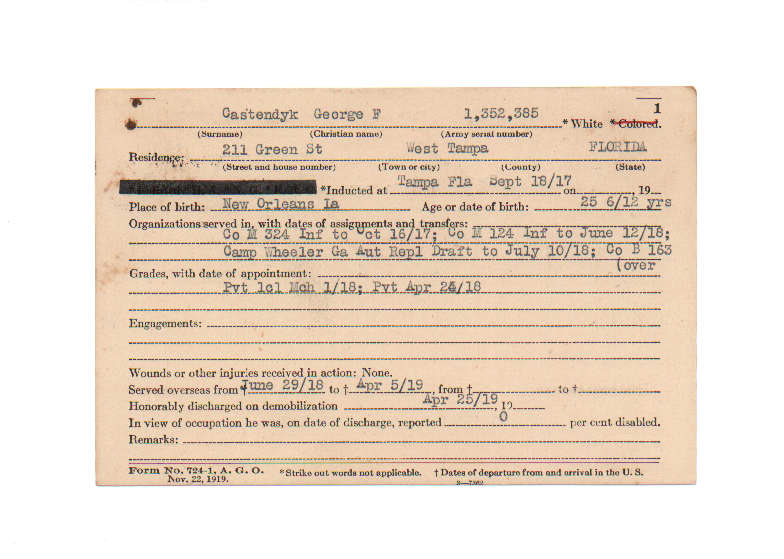 1
Castendyk George F 1,352,385 * White * Colored.
(Surname) (Christian name) (Army serial number)
Residence: 211 Green St West Tampa FLORIDA
(Street and house number) (Town or city) (County) (State)
*Inducted at Tampa Fla Sept 18/17 on , 19
Place of birth: New Orleans La Age or date of birth: 25 6/12 yrs
Organizations served in, with dates of assignments and transfers:
Co M 324 Inf to Oct 16/17; Co M 124 Inf to June 12/18;
Camp Wheeler Ga Aut Repl Draft to July 10/18; Co B 163
(over
Grades, with date of appointment:
Pvt 1cl Mch 1/18; Pvt Apr 24/18
Engagements:
Wounds or other injuries received in action: None.
Served overseas from † June 29/18 to † Apr 5/19, from † to †
Honorably discharged on demobilization Apr 25/19, 19
In view of occupation he was, on date of discharge, reported 0 per cent disabled.
Remarks:
Form No. 724-1, A. G. O. *Strike out words not applicable. † Dates of departure from and arrival in the U. S.
Nov. 22, 1919.